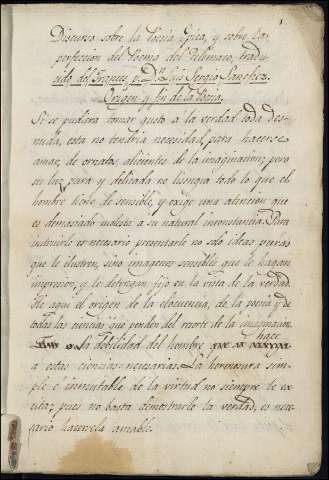 Discurso sobre la Poesia Epica, y sobre la
perfeccion del Poema del Telemaco, tradu
cido del Frances, p. Dn. Luis Sergio Sanchez.
Origen y fin de la Poesia.
Si se pudiera tomar gusto a la verdad toda des-
nuda, esta no tendria necesidad, para hacerse
amar, de ornatos, alicientes de la imaginacion; pero
su luz pura y delicada no lisongea todo lo que el
hombre tiene de sensible, y exige una atencion que
es demasiado molesta a su natural inconstancia. Para
instruirle es necesario presentarle no solo ideas puras
que le ilustren, sino imagenes sensibles que le hagan
impresion, y le detengan fijo en la vista de la verdad.
He aqui el origen de la elocuencia, de la poesia y de
todas las ciencias que penden del resorte de la imaginacion
la debilidad del hombre hace
a estas ciencias necesarias. La hermosura sim-
ple e inmutable de la virtud no siempre le ex
cita; pues no basta demostrarle la verdad, es nece
sario hacersela amable.